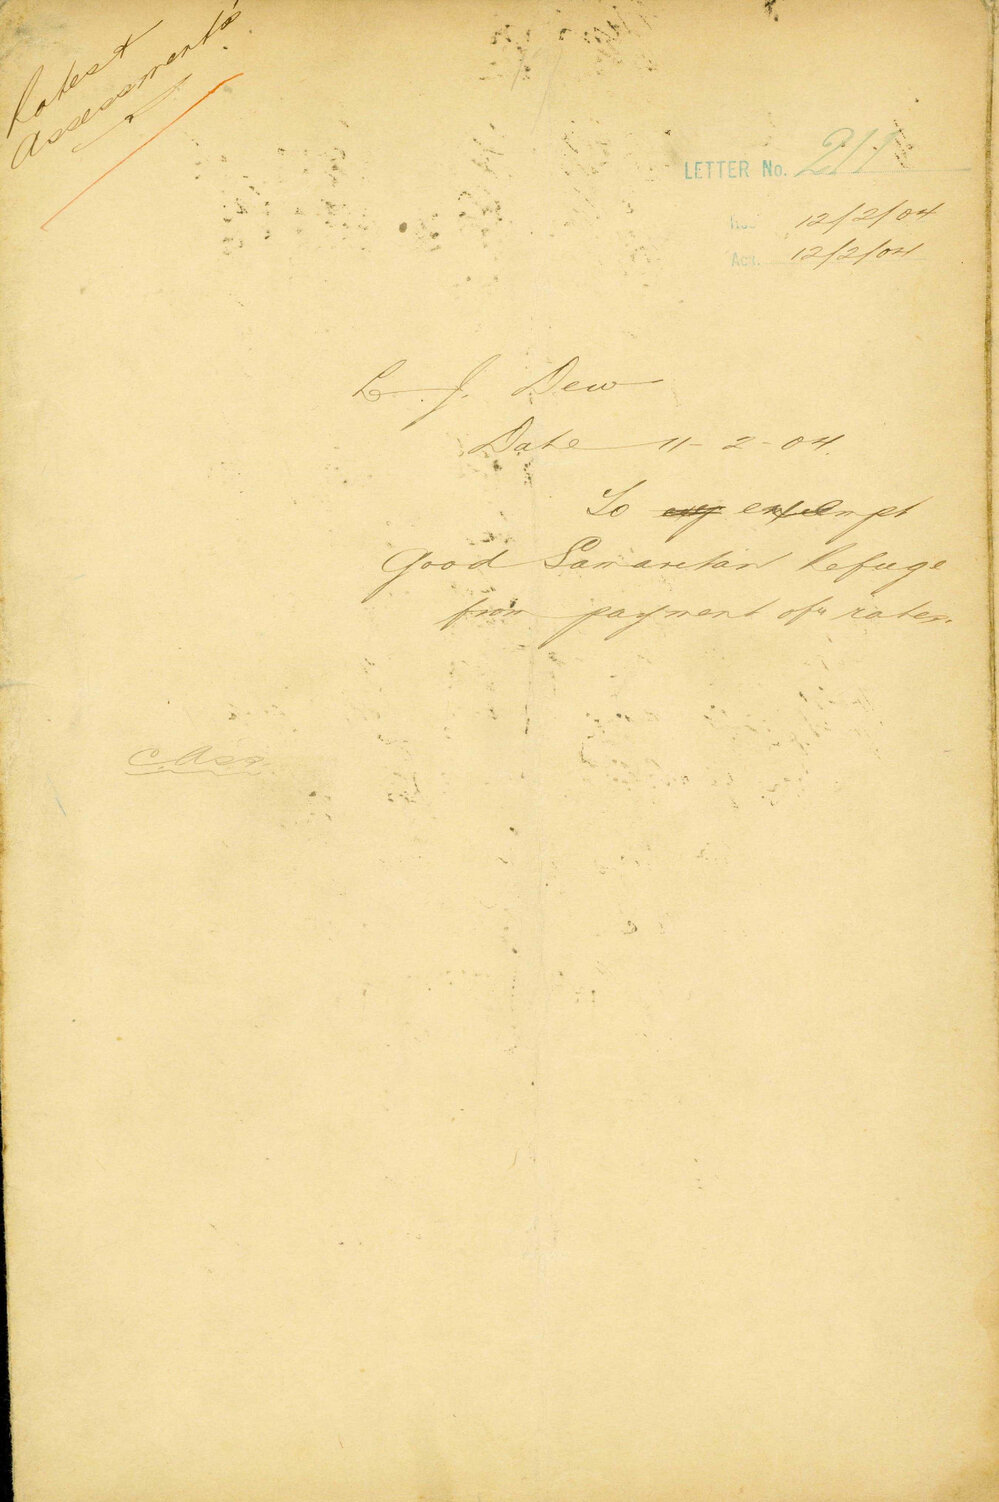 Latest
Assessments
LETTER No. 211
Rec 12/2/04
Ack. 12/2/04
L. J. Dew
Date 11-2-04.
To exempt
Good Samaritan Refuge
from payment of rates.
C. Ass